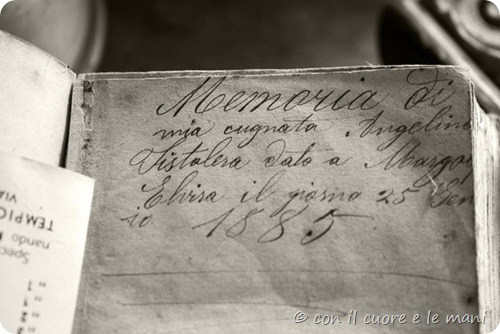 Memoria di
mia cugnata Angelina
Pistolera dato a Margo
Elvira il giorno 25 Gen
io. 1885
TEMPIO
VIA
Spec
nando
© con il cuore e le mani